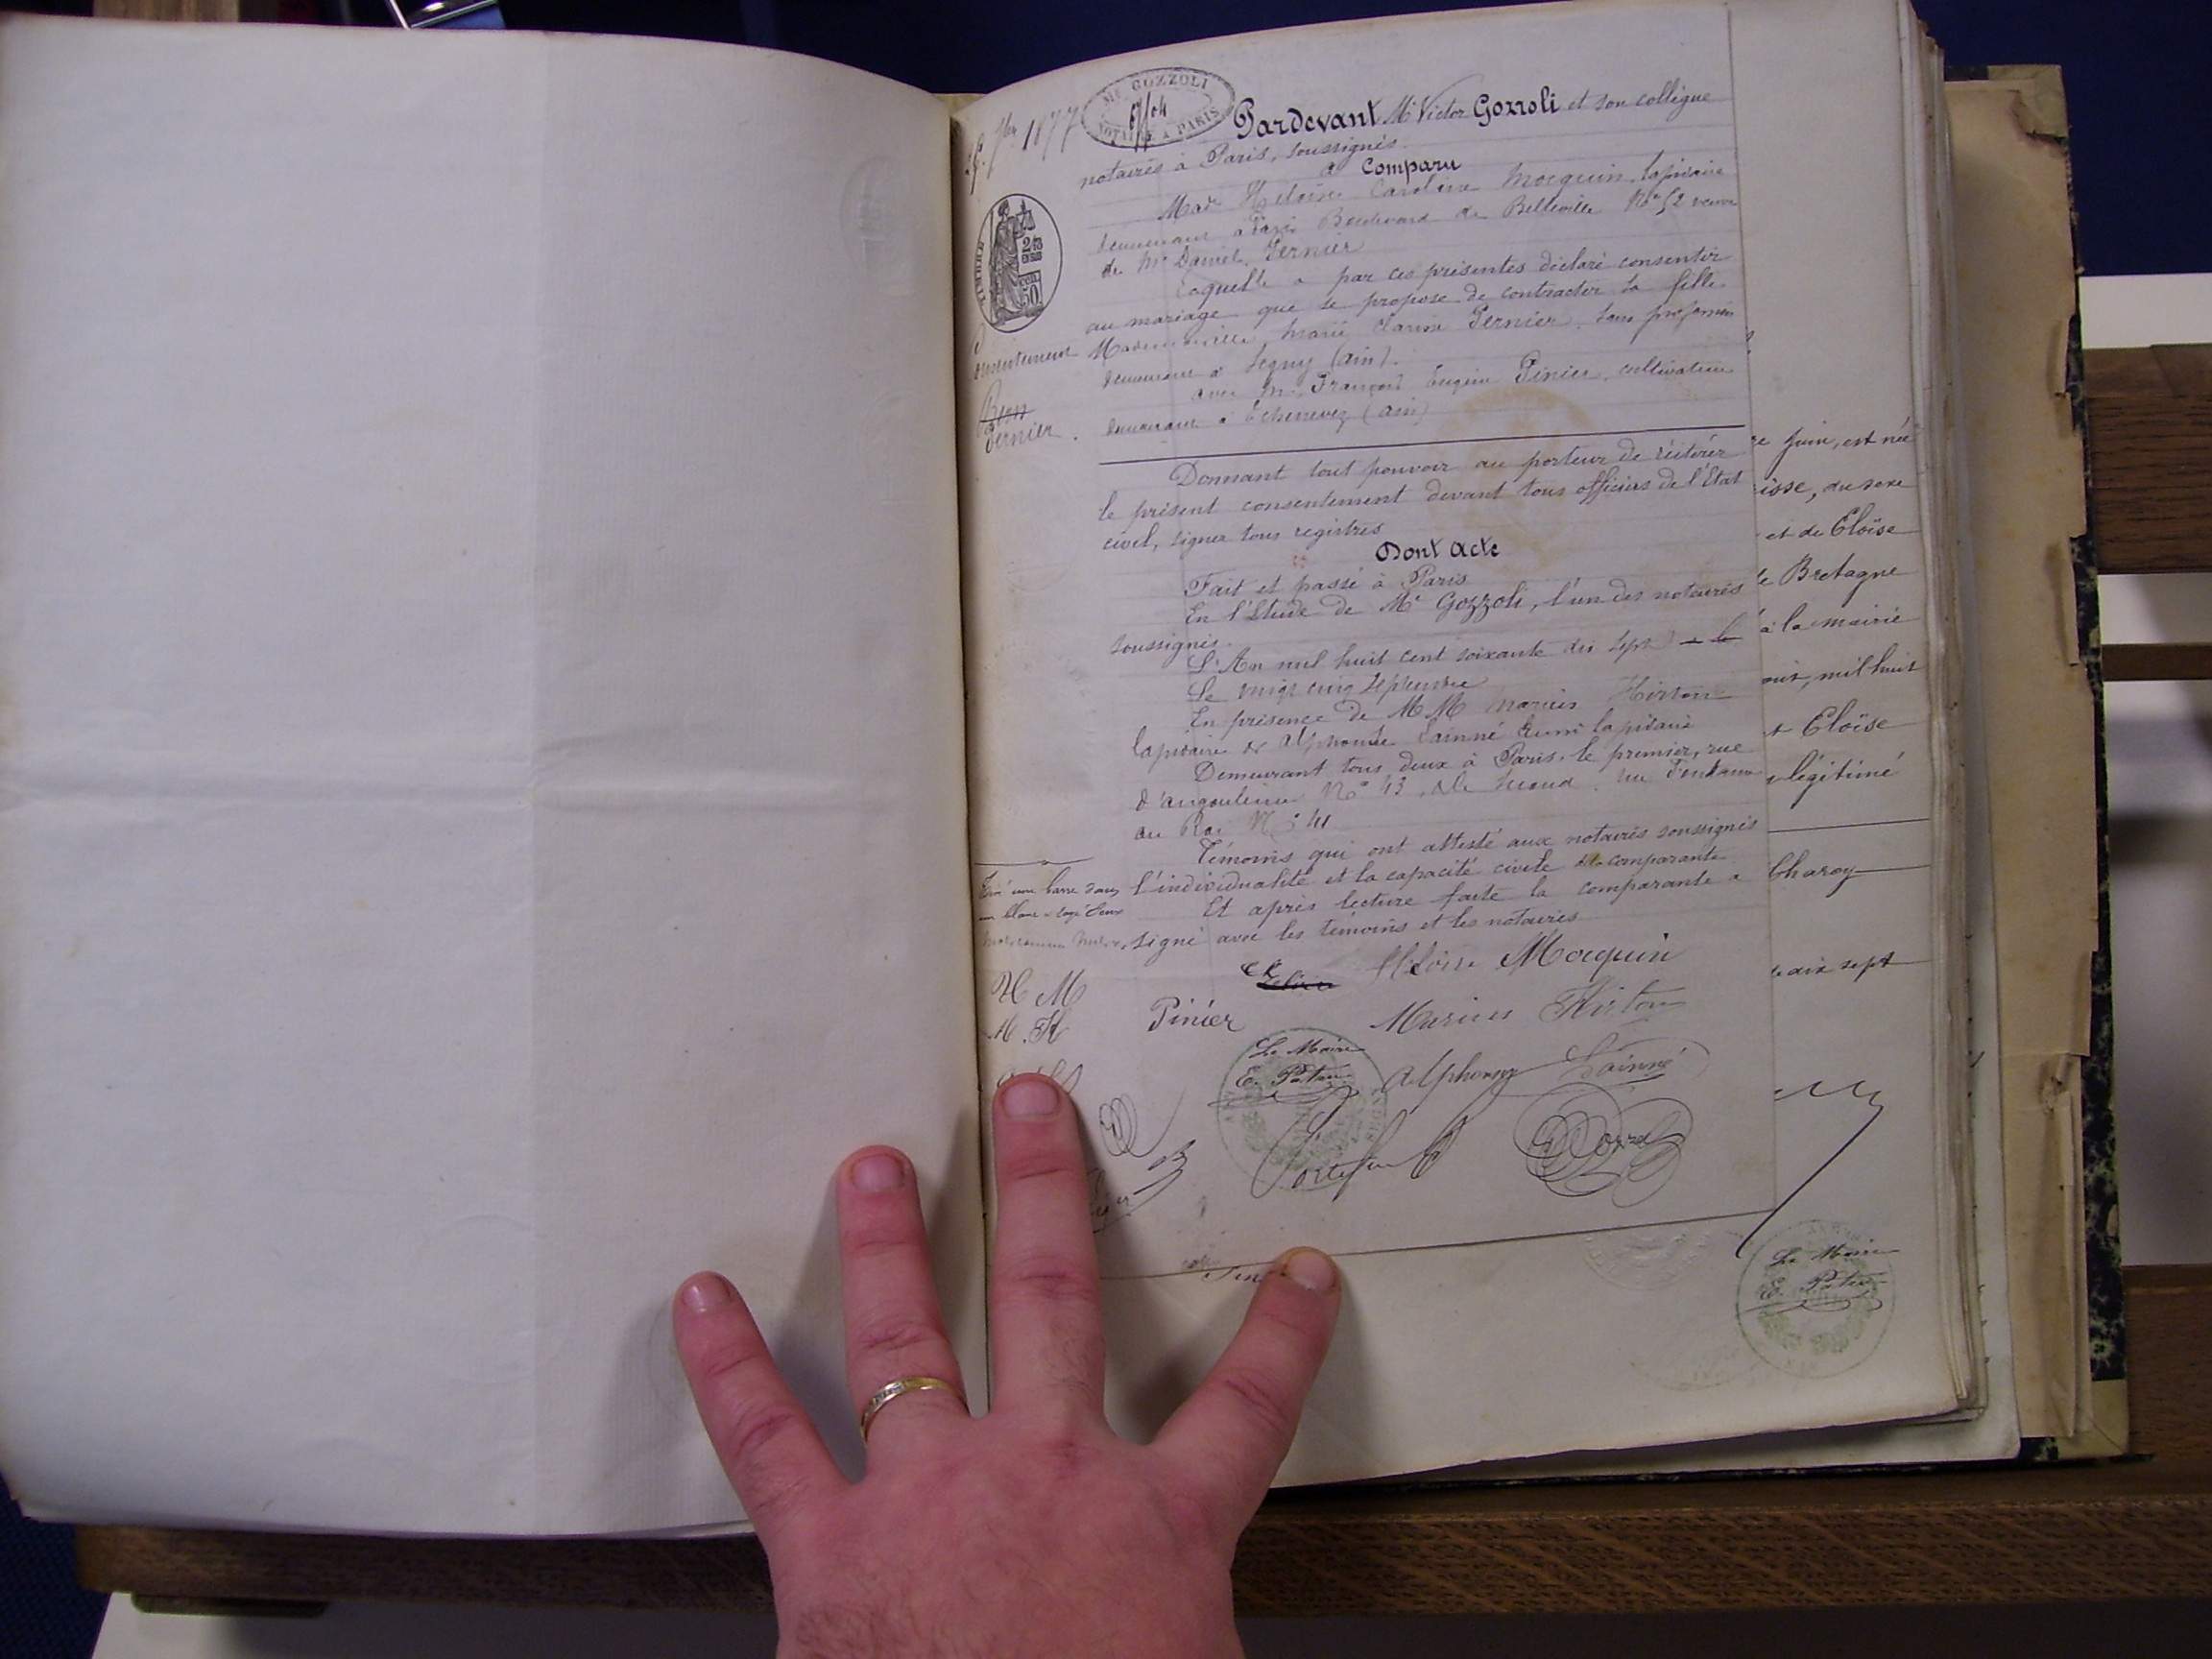 7bre 1877
Me GOZZOLI
NOTAIRE A PARIS
Pardevant Me Victor Gozzoli et son collègue
notaires à Paris, soussignés.
a Comparu
Made Héloïse Caroline Mocquin, lapidaire
demeurant à Paris Boulevard de Belleville No 52 veuve
de Mr Daniel Pernier
Laquelle a par ces présentes déclaré consentir
au mariage que se propose de contracter sa fille
Mademoiselle Marie Clarisse Pernier, sans profession
demeurant à Segny (ain).
avec Mr François Eugène Pinier, cultivateur
demeurant à Echenevez (ain)
TIMBRE
50
onsentement
Pernier.
Donnant tout pouvoir au porteur de réitérer
le présent consentement devant tous officiers de l'Etat
civil, signer tous registres
Dont Acte
Fait et passé à Paris
En l'Etude de Me Gozzoli, l'un des notaires
soussignés.
L'An mil huit cent soixante dix sept
Le vingt cinq Septembre
En présence de MM Marius Hirton
lapidaire & Alphonse Lainné aussi lapidaire
Demeurant tous deux à Paris, le premier, rue
d'angoulème No 43, & le second, rue Fontaine
au Roi No 41
Témoins qui ont attesté aux notaires soussignés
l'individualité et la capacité civile de la comparante
Et après lecture faite la comparante a
signé avec les témoins et les notaires
Rayé une barre dans
un blanc & rayé deux
mots comme nuls.
Héloïse Mocquin
H M
M. H
Pinier
Marius Hirton
Le Maire
E. Patru
Alphonse Lainné
re Juin, est née
isse, du sexe
et de Eloïse
de Bretagne
à la mairie
out, mil huit
t Eloïse
légitimé
Charoy
te dix sept
Le Maire
E. Patru